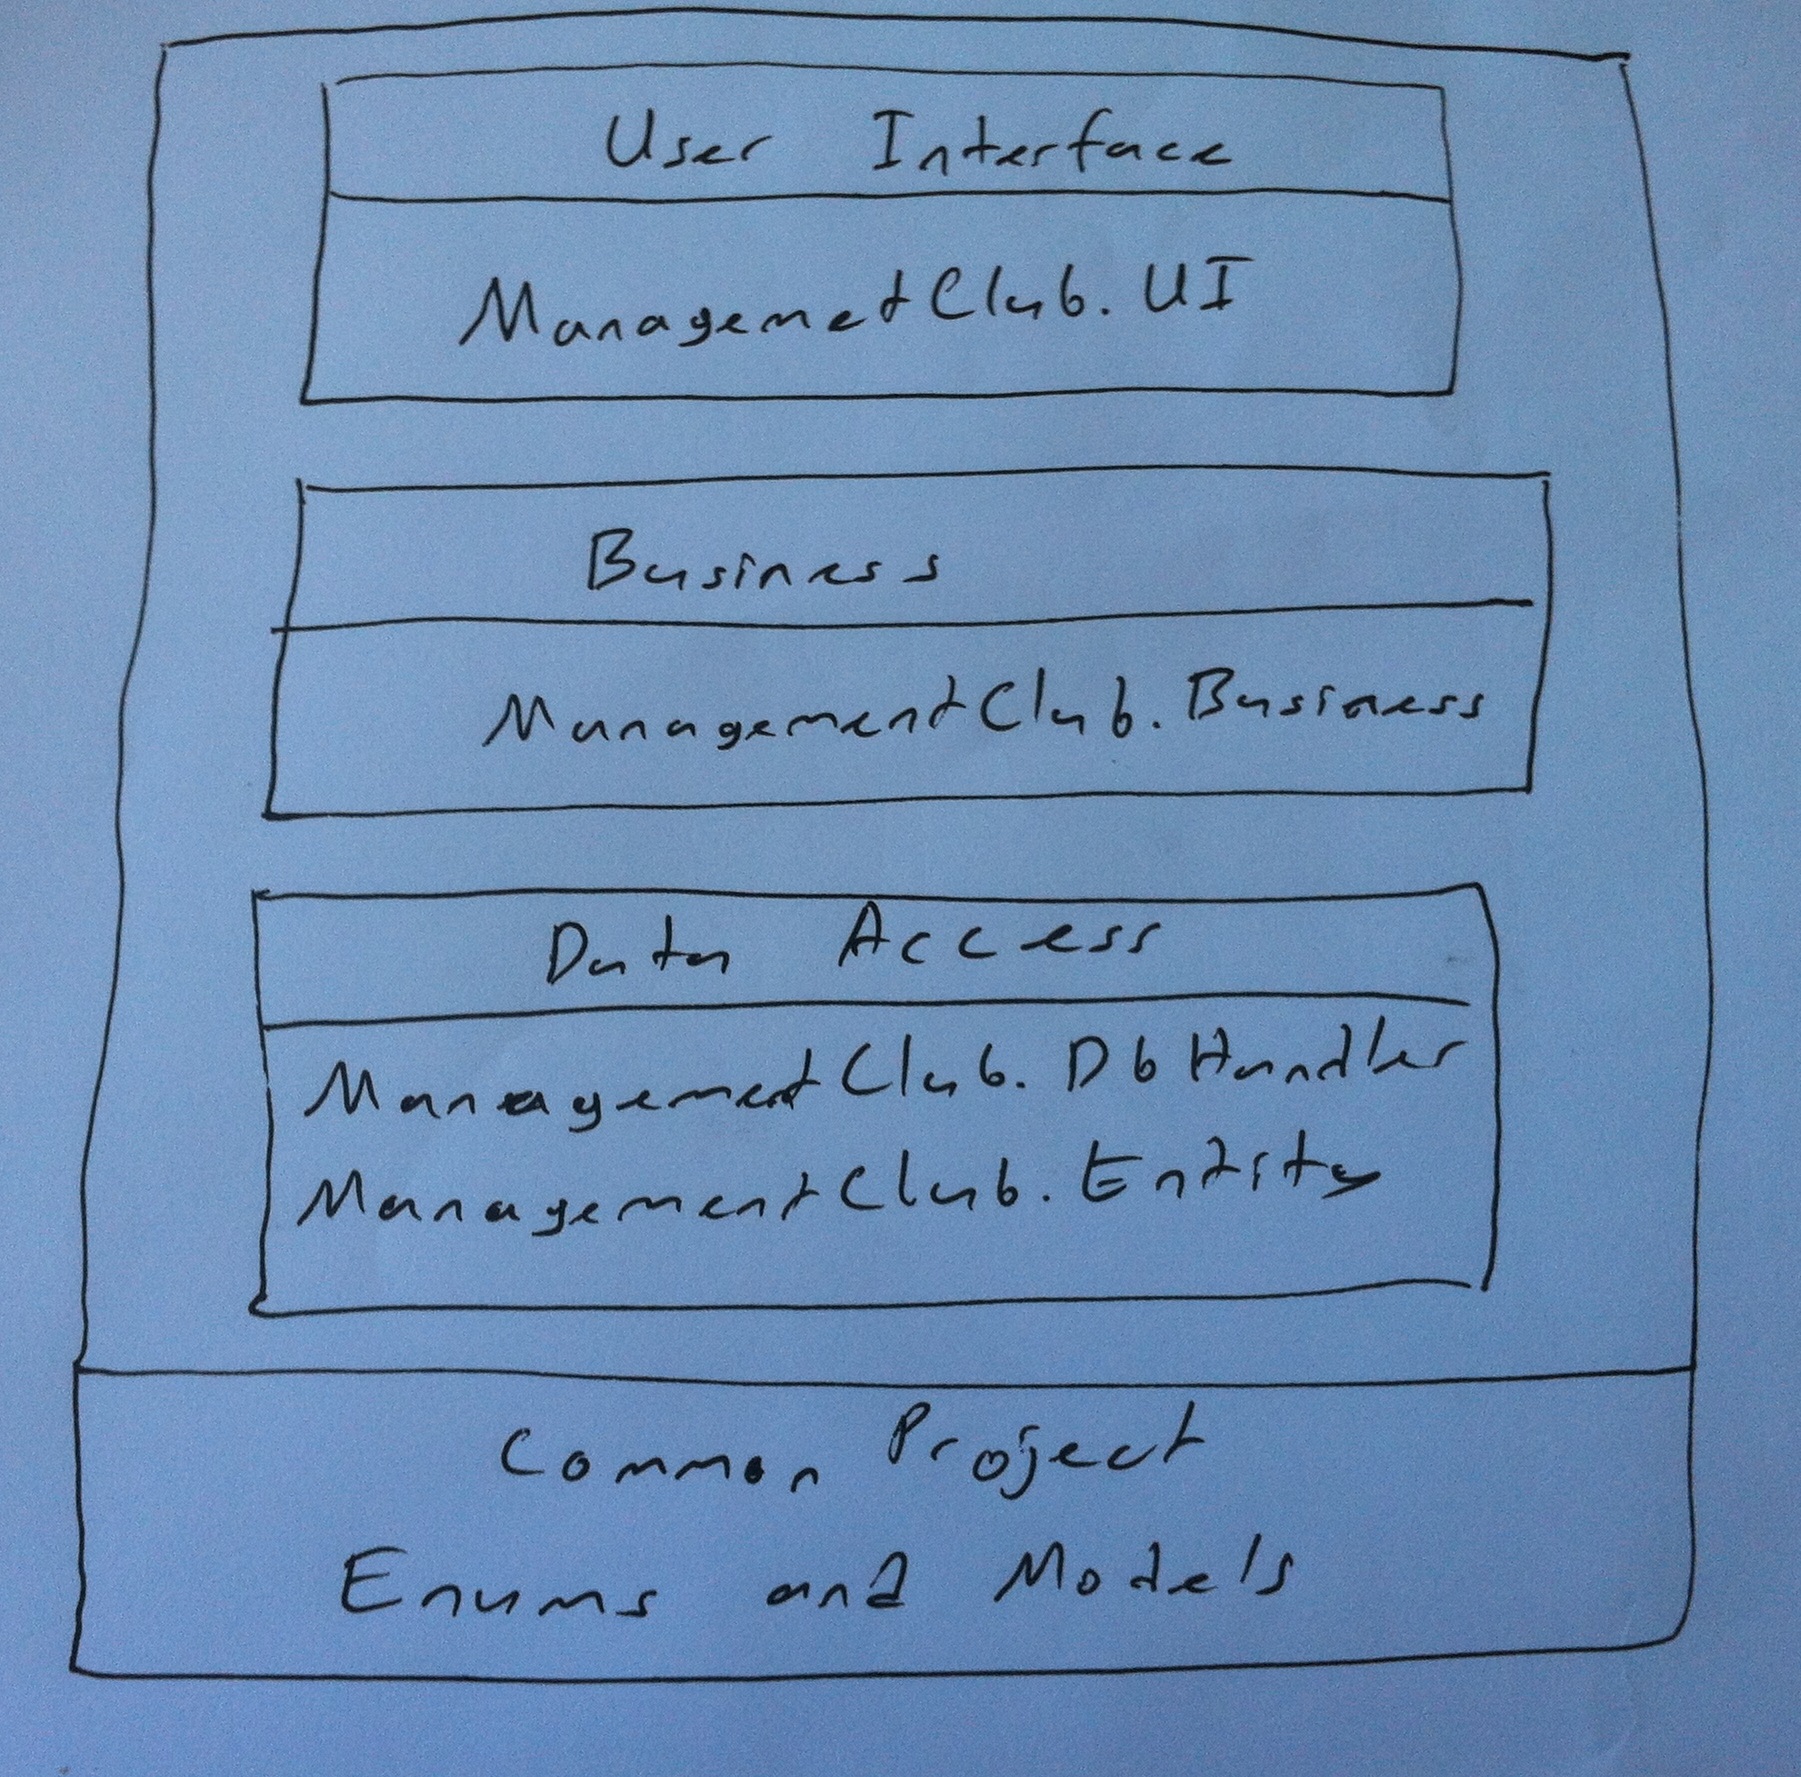 User Interface
ManagemetClub.UI
Business
ManagementClub.Business
Data Access
ManagemetClub.DbHandler
ManagementClub.Endity
Common Project
Enums and Models